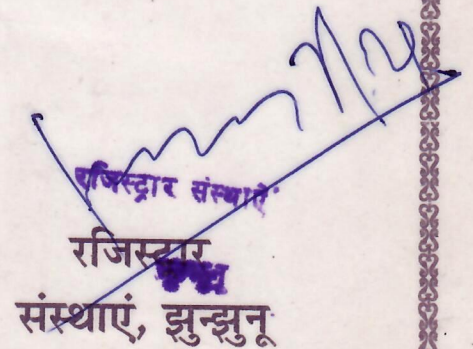 रजिस्ट्रार संस्थाऐं
रजिस्ट्रार
संस्थाएं, झुन्झुनू